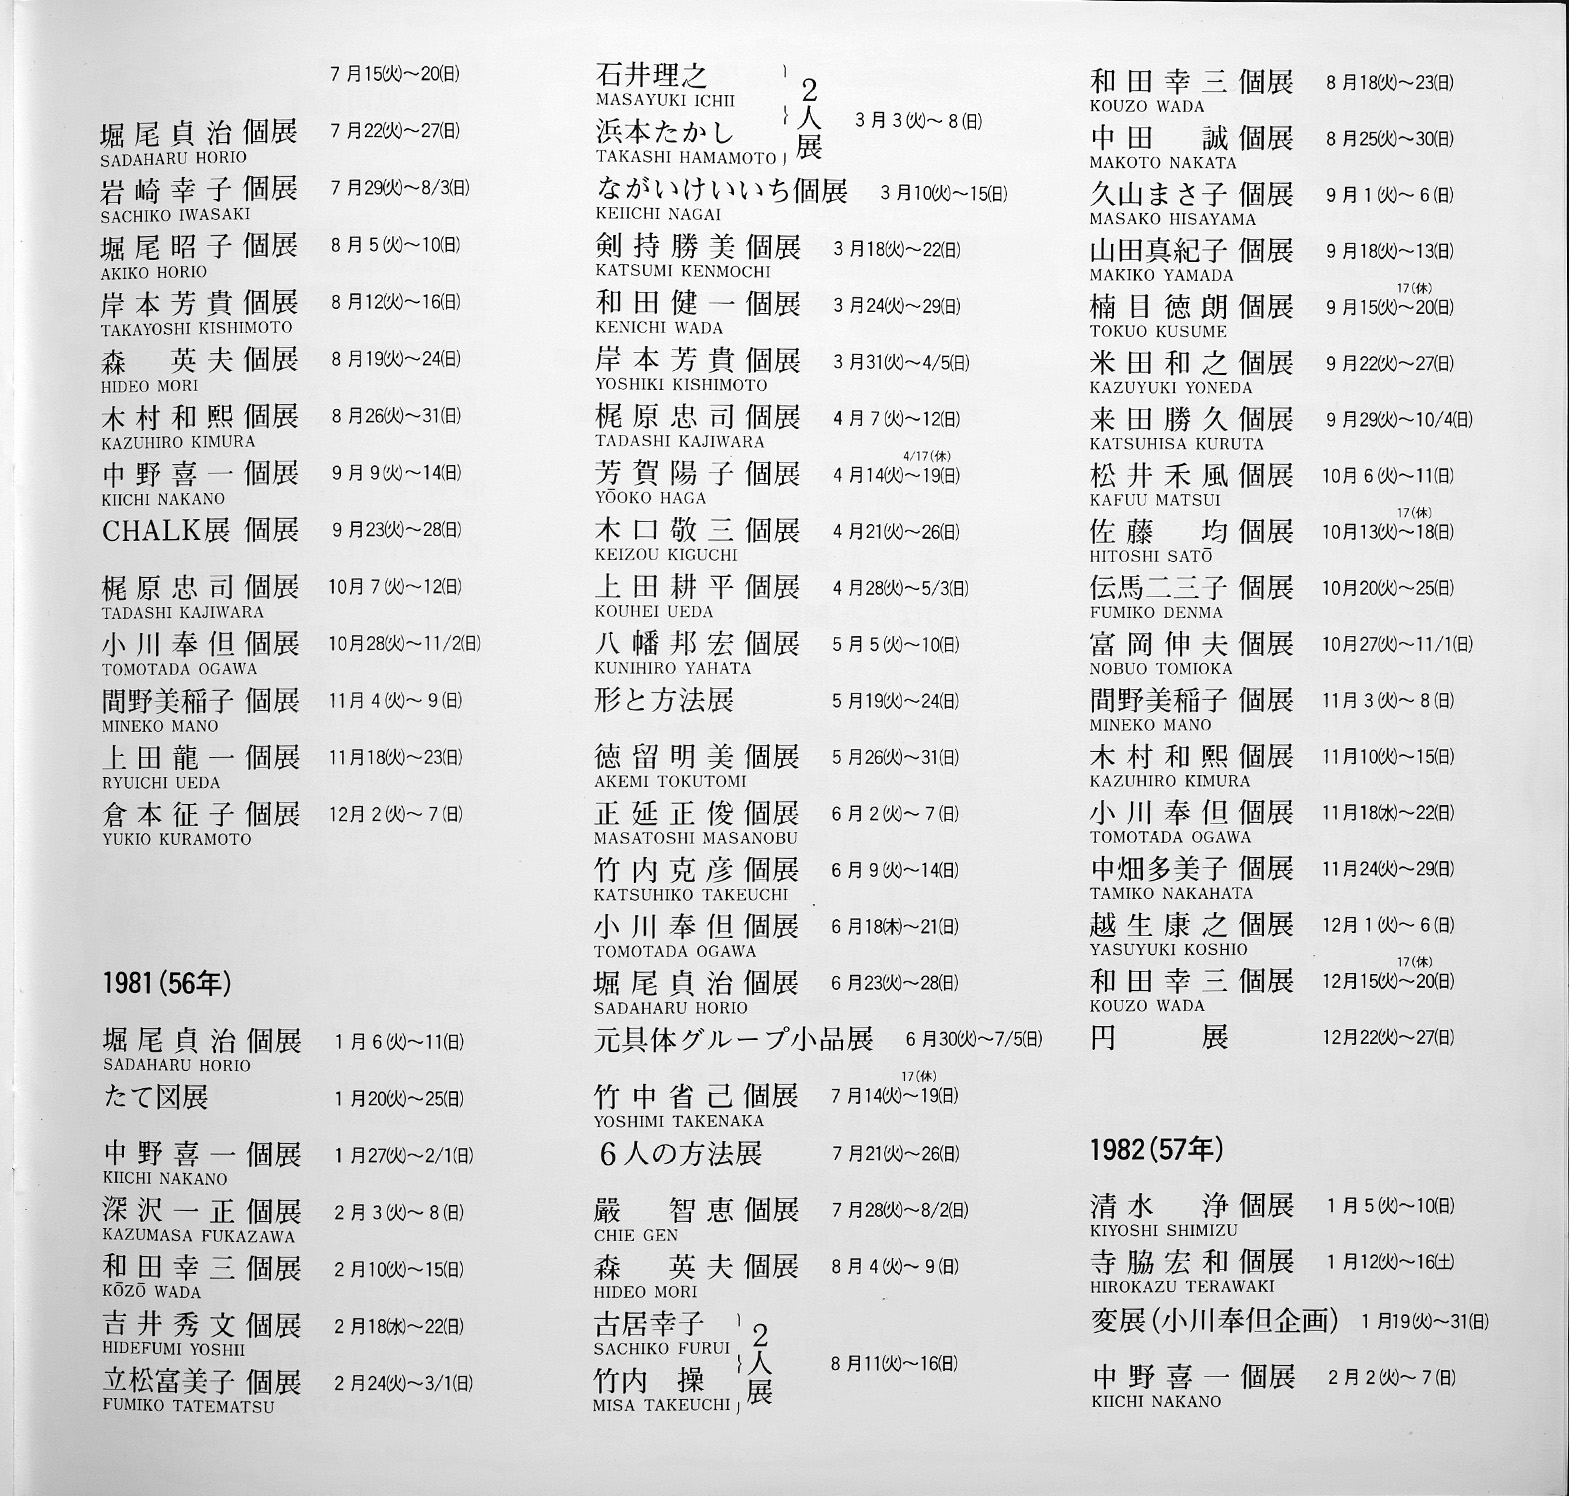 7月15(火)〜20(日)
堀尾貞治 個展 7月22(火)〜27(日)
SADAHARU HORIO
岩崎幸子 個展 7月29(火)〜8/3(日)
SACHIKO IWASAKI
堀尾昭子 個展 8月5(火)〜10(日)
AKIKO HORIO
岸本芳貴 個展 8月12(火)〜16(日)
TAKAYOSHI KISHIMOTO
森 英夫 個展 8月19(火)〜24(日)
HIDEO MORI
木村和熙 個展 8月26(火)〜31(日)
KAZUHIRO KIMURA
中野喜一 個展 9月9(火)〜14(日)
KIICHI NAKANO
CHALK展 個展 9月23(火)〜28(日)
梶原忠司 個展 10月7(火)〜12(日)
TADASHI KAJIWARA
小川奉但 個展 10月28(火)〜11/2(日)
TOMOTADA OGAWA
間野美稲子 個展 11月4(火)〜9(日)
MINEKO MANO
上田龍一 個展 11月18(火)〜23(日)
RYUICHI UEDA
倉本征子 個展 12月2(火)〜7(日)
YUKIO KURAMOTO
1981(56年)
堀尾貞治 個展 1月6(火)〜11(日)
SADAHARU HORIO
たて図展 1月20(火)〜25(日)
中野喜一 個展 1月27(火)〜2/1(日)
KIICHI NAKANO
深沢一正 個展 2月3(火)〜8(日)
KAZUMASA FUKAZAWA
和田幸三 個展 2月10(火)〜15(日)
KŌZŌ WADA
吉井秀文 個展 2月18(水)〜22(日)
HIDEFUMI YOSHII
立松富美子 個展 2月24(火)〜3/1(日)
FUMIKO TATEMATSU
石井理之
MASAYUKI ICHII
2人展 3月3(火)〜8(日)
浜本たかし
TAKASHI HAMAMOTO
ながいけいいち個展 3月10(火)〜15(日)
KEIICHI NAGAI
剣持勝美 個展 3月18(火)〜22(日)
KATSUMI KENMOCHI
和田健一 個展 3月24(火)〜29(日)
KENICHI WADA
岸本芳貴 個展 3月31(火)〜4/5(日)
YOSHIKI KISHIMOTO
梶原忠司 個展 4月7(火)〜12(日)
TADASHI KAJIWARA
4/17(休)
芳賀陽子 個展 4月14(火)〜19(日)
YŌOKO HAGA
木口敬三 個展 4月21(火)〜26(日)
KEIZOU KIGUCHI
上田耕平 個展 4月28(火)〜5/3(日)
KOUHEI UEDA
八幡邦宏 個展 5月5(火)〜10(日)
KUNIHIRO YAHATA
形と方法展 5月19(火)〜24(日)
徳留明美 個展 5月26(火)〜31(日)
AKEMI TOKUTOMI
正延正俊 個展 6月2(火)〜7(日)
MASATOSHI MASANOBU
竹内克彦 個展 6月9(火)〜14(日)
KATSUHIKO TAKEUCHI
小川奉但 個展 6月18(木)〜21(日)
TOMOTADA OGAWA
堀尾貞治 個展 6月23(火)〜28(日)
SADAHARU HORIO
元具体グループ小品展 6月30(火)〜7/5(日)
17(休)
竹中省己 個展 7月14(火)〜19(日)
YOSHIMI TAKENAKA
6人の方法展 7月21(火)〜26(日)
嚴 智恵 個展 7月28(火)〜8/2(日)
CHIE GEN
森 英夫 個展 8月4(火)〜9(日)
HIDEO MORI
古居幸子
SACHIKO FURUI
2人展 8月11(火)〜16(日)
竹内 操
MISA TAKEUCHI
和田幸三 個展 8月18(火)〜23(日)
KOUZO WADA
中田 誠 個展 8月25(火)〜30(日)
MAKOTO NAKATA
久山まさ子 個展 9月1(火)〜6(日)
MASAKO HISAYAMA
山田真紀子 個展 9月18(火)〜13(日)
MAKIKO YAMADA
17(休)
楠目徳朗 個展 9月15(火)〜20(日)
TOKUO KUSUME
米田和之 個展 9月22(火)〜27(日)
KAZUYUKI YONEDA
来田勝久 個展 9月29(火)〜10/4(日)
KATSUHISA KURUTA
松井禾風 個展 10月6(火)〜11(日)
KAFUU MATSUI
17(休)
佐藤 均 個展 10月13(火)〜18(日)
HITOSHI SATŌ
伝馬二三子 個展 10月20(火)〜25(日)
FUMIKO DENMA
富岡伸夫 個展 10月27(火)〜11/1(日)
NOBUO TOMIOKA
間野美稲子 個展 11月3(火)〜8(日)
MINEKO MANO
木村和熙 個展 11月10(火)〜15(日)
KAZUHIRO KIMURA
小川奉但 個展 11月18(水)〜22(日)
TOMOTADA OGAWA
中畑多美子 個展 11月24(火)〜29(日)
TAMIKO NAKAHATA
越生康之 個展 12月1(火)〜6(日)
YASUYUKI KOSHIO
17(休)
和田幸三 個展 12月15(火)〜20(日)
KOUZO WADA
円 展 12月22(火)〜27(日)
1982(57年)
清水 浄 個展 1月5(火)〜10(日)
KIYOSHI SHIMIZU
寺脇宏和 個展 1月12(火)〜16(土)
HIROKAZU TERAWAKI
変展(小川奉但企画) 1月19(火)〜31(日)
中野喜一 個展 2月2(火)〜7(日)
KIICHI NAKANO